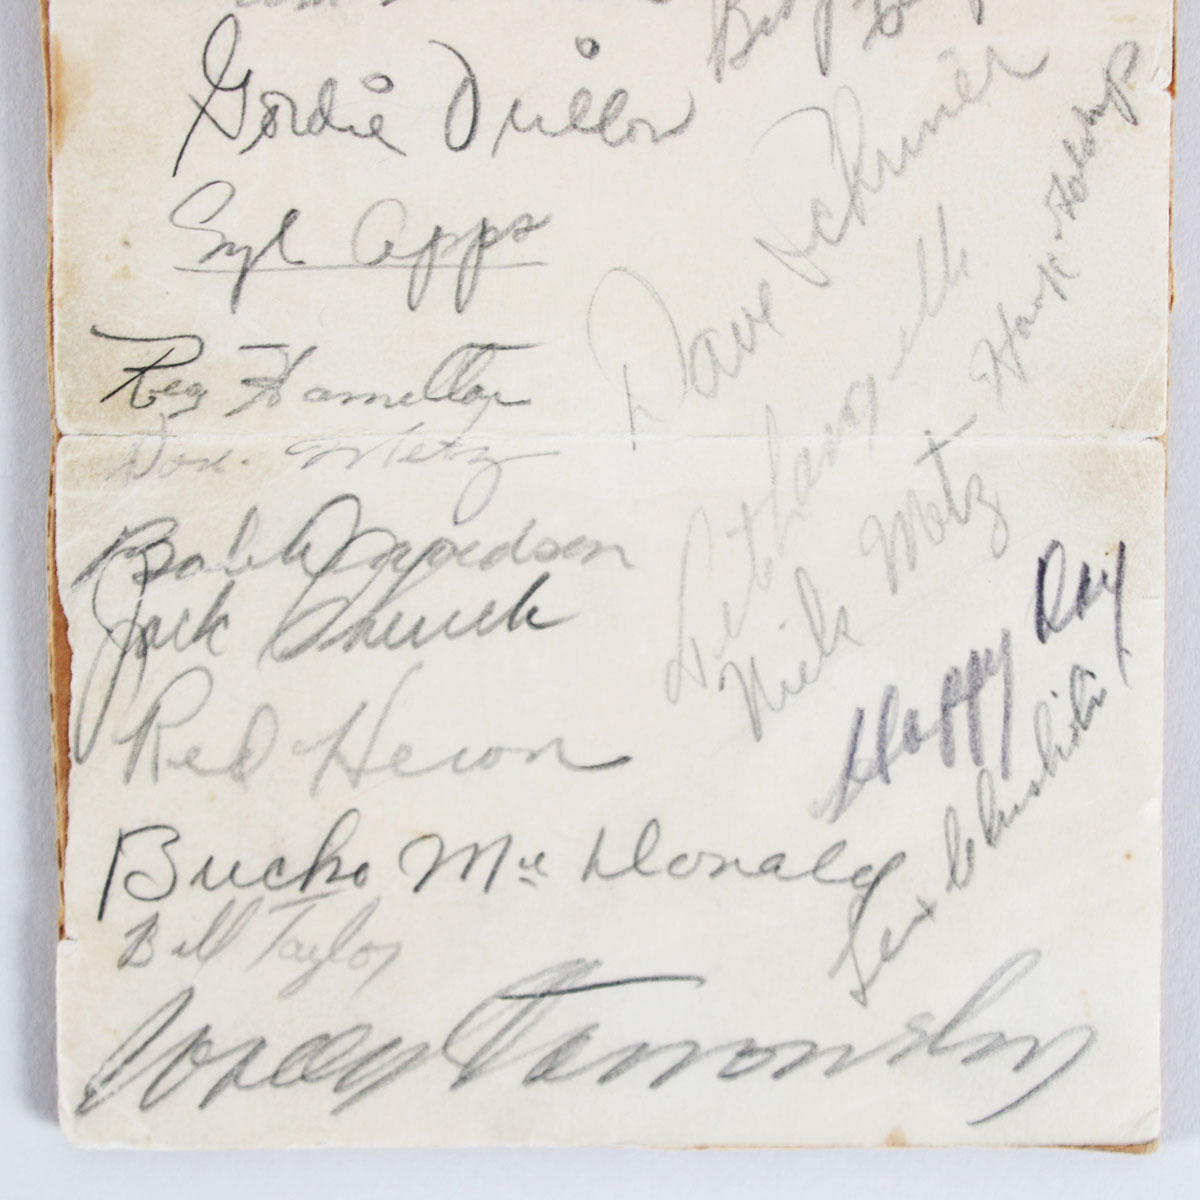 Gordie Drillon
Syl Apps
Reg Hamilton
Don. Metz
Bob Davidson
Jack Church
Red Heron
Bucko McDonald
Bill Taylor
Wally Stanowsky
Dave Schriner
Pete Langelle
Nick Metz
Hank Goldup
Happy Day
Lex Chisholm